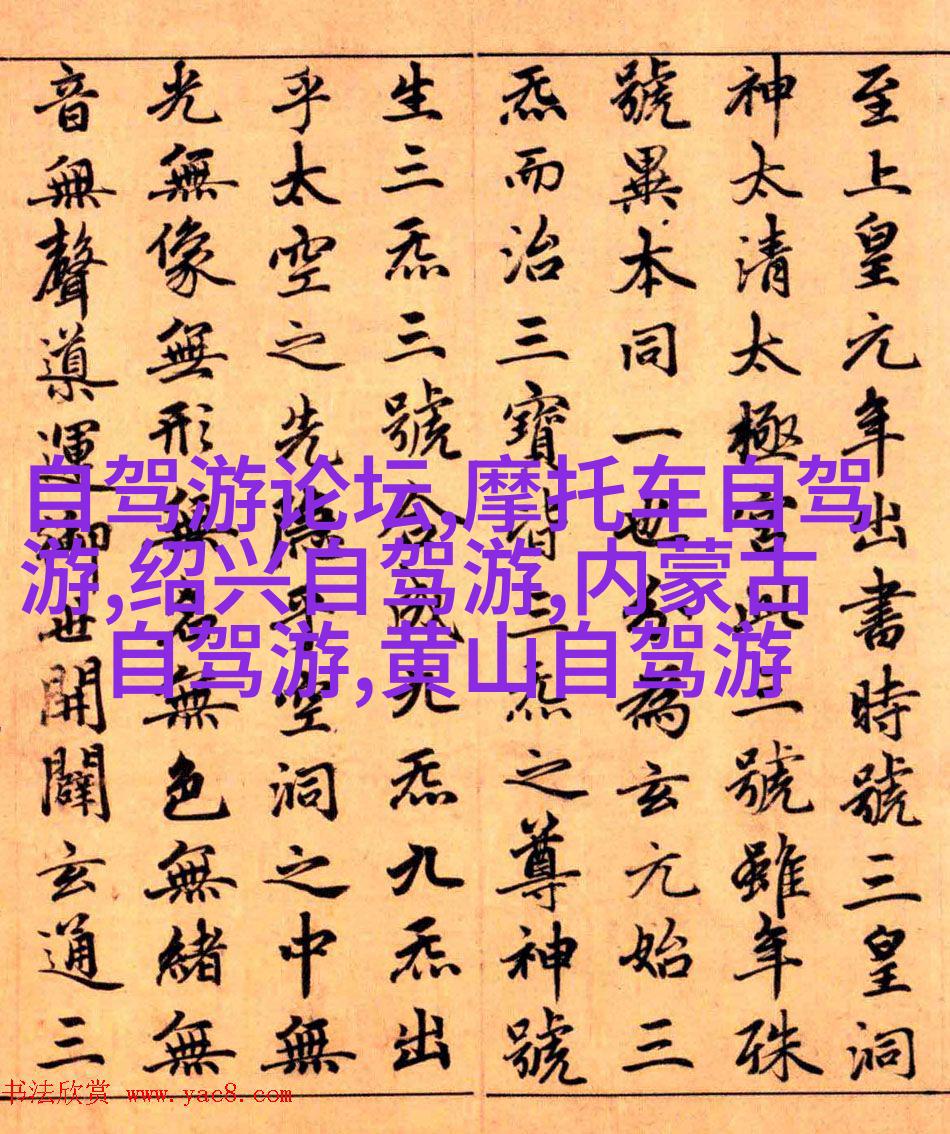 至上皇元年出書時號三皇洞
神太清太極宮此三號雖年殊
號異本同一也分為玄元始三
炁而治三寶皆三炁之尊神號
生三炁三號合成九炁九炁出
乎太空之先隱乎空洞之中無
光無像無形無名無色無緒無
音無聲導運御世開闢玄通三
自驾游论坛,摩托车自驾
游,绍兴自驾游,内蒙古
自驾游,黄山自驾游
书法欣赏 www.yac8.com